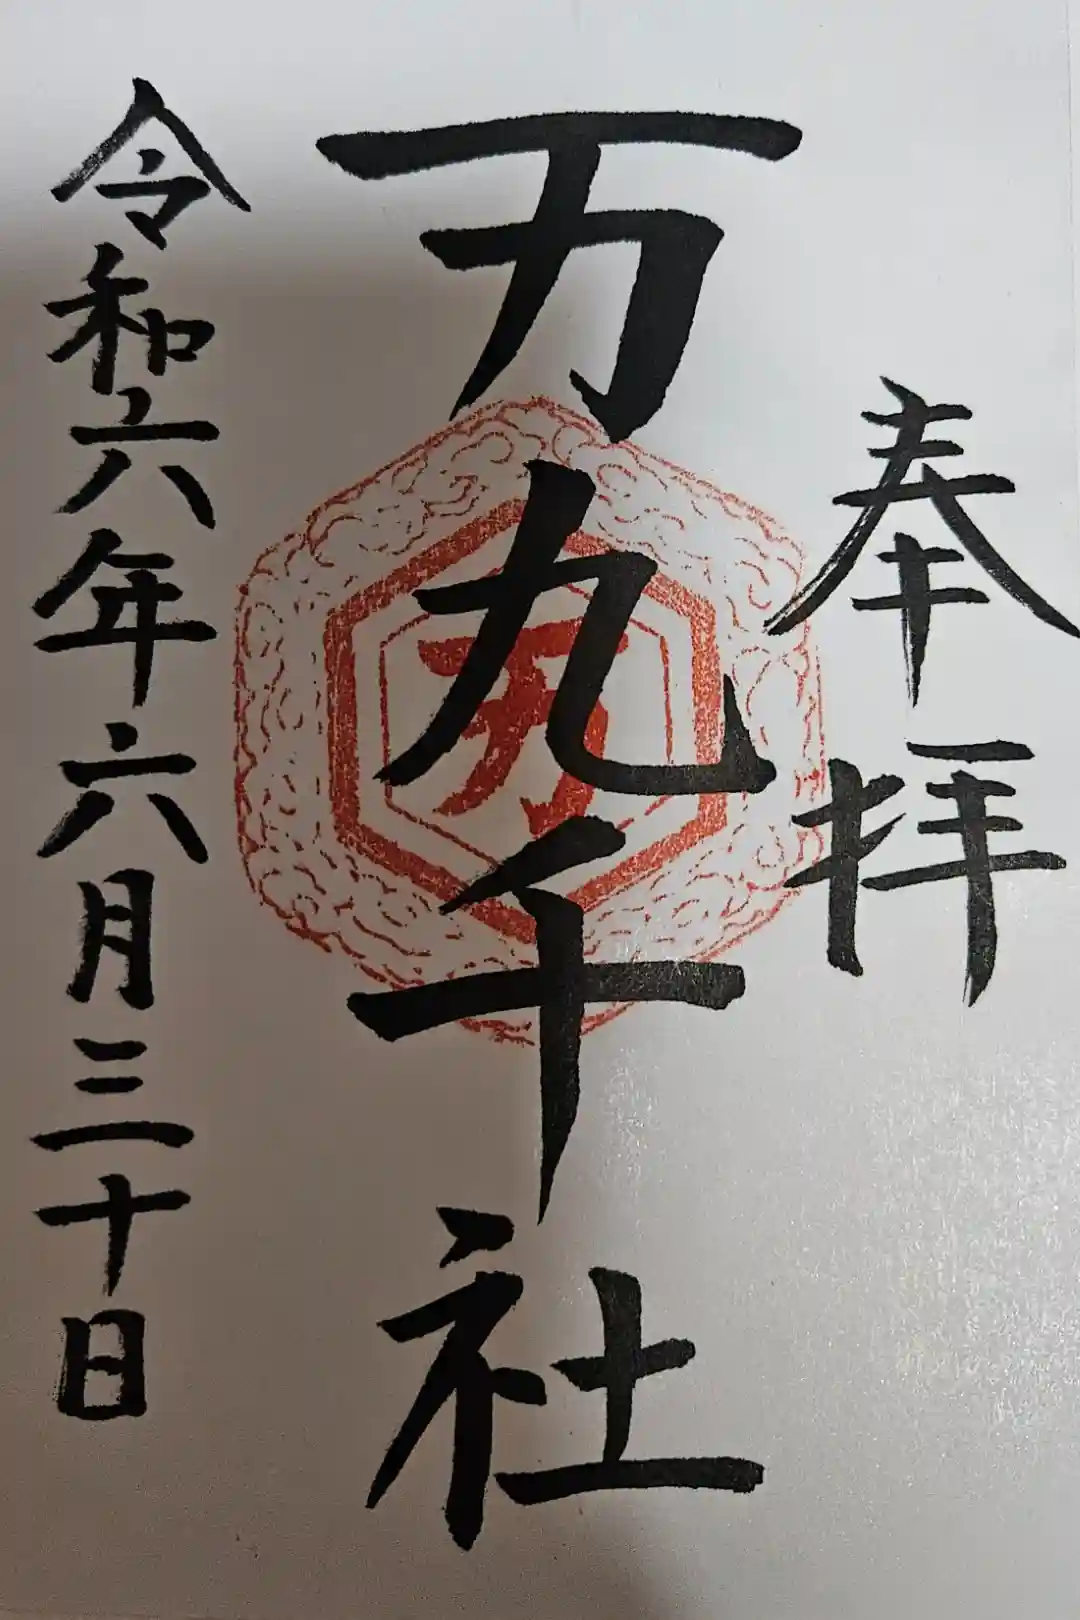 奉拝
万九千社
令和六年六月三十日